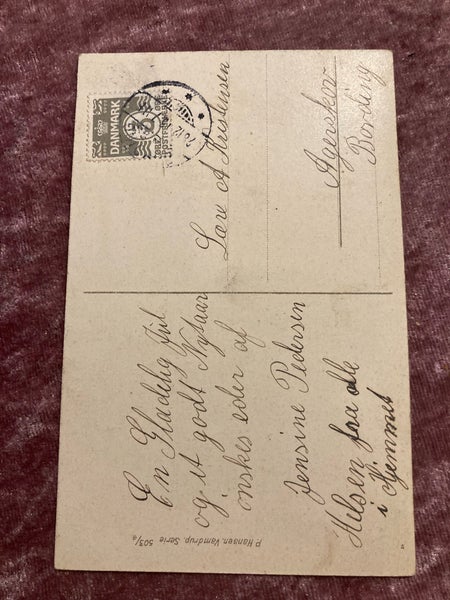 En Glædelig Jul
og et godt Nytaar
ønskes eder af
Jensine Pedersen
Hilsen faa alle
i Hjemmet
P. Hansen, Vamdrup. Serie 503/8
DANMARK
2
Lars A Kristensen
Agerskov
Bording